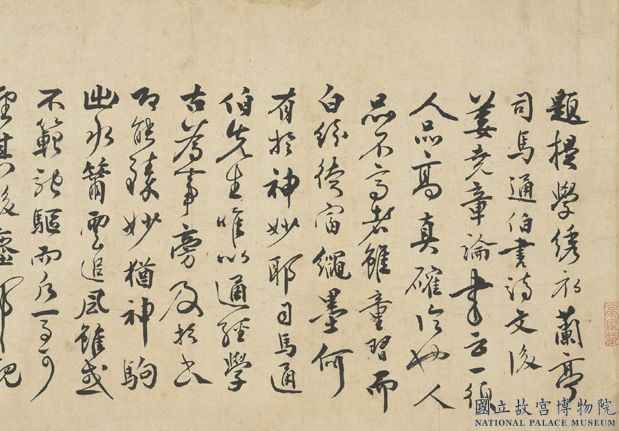 題學蘭亭
司馬通伯書詩文後
姜堯章論書云一須
人品高真確論也人
品不高者雖童習而
白紛徒富繩墨何
有於神妙耶司馬通
伯先生唯以通經學
古為事旁及於書
即能臻妙猶神駒
出水籋雲追風雖或
不範馳驅而
國立故宮博物院
NATIONAL PALACE MUSEUM